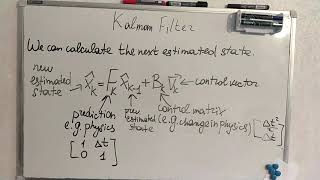 Kalman Filter
We can calculate the next estimated state.
new
estimated
state
x̂k = Fk x̂k-1 + Bk
control vector
prediction
e.g. physics
prev
estimated
state
control matrix
(e.g. change in physics)
[1 Δt
0 1]
[Δt²
Δt]